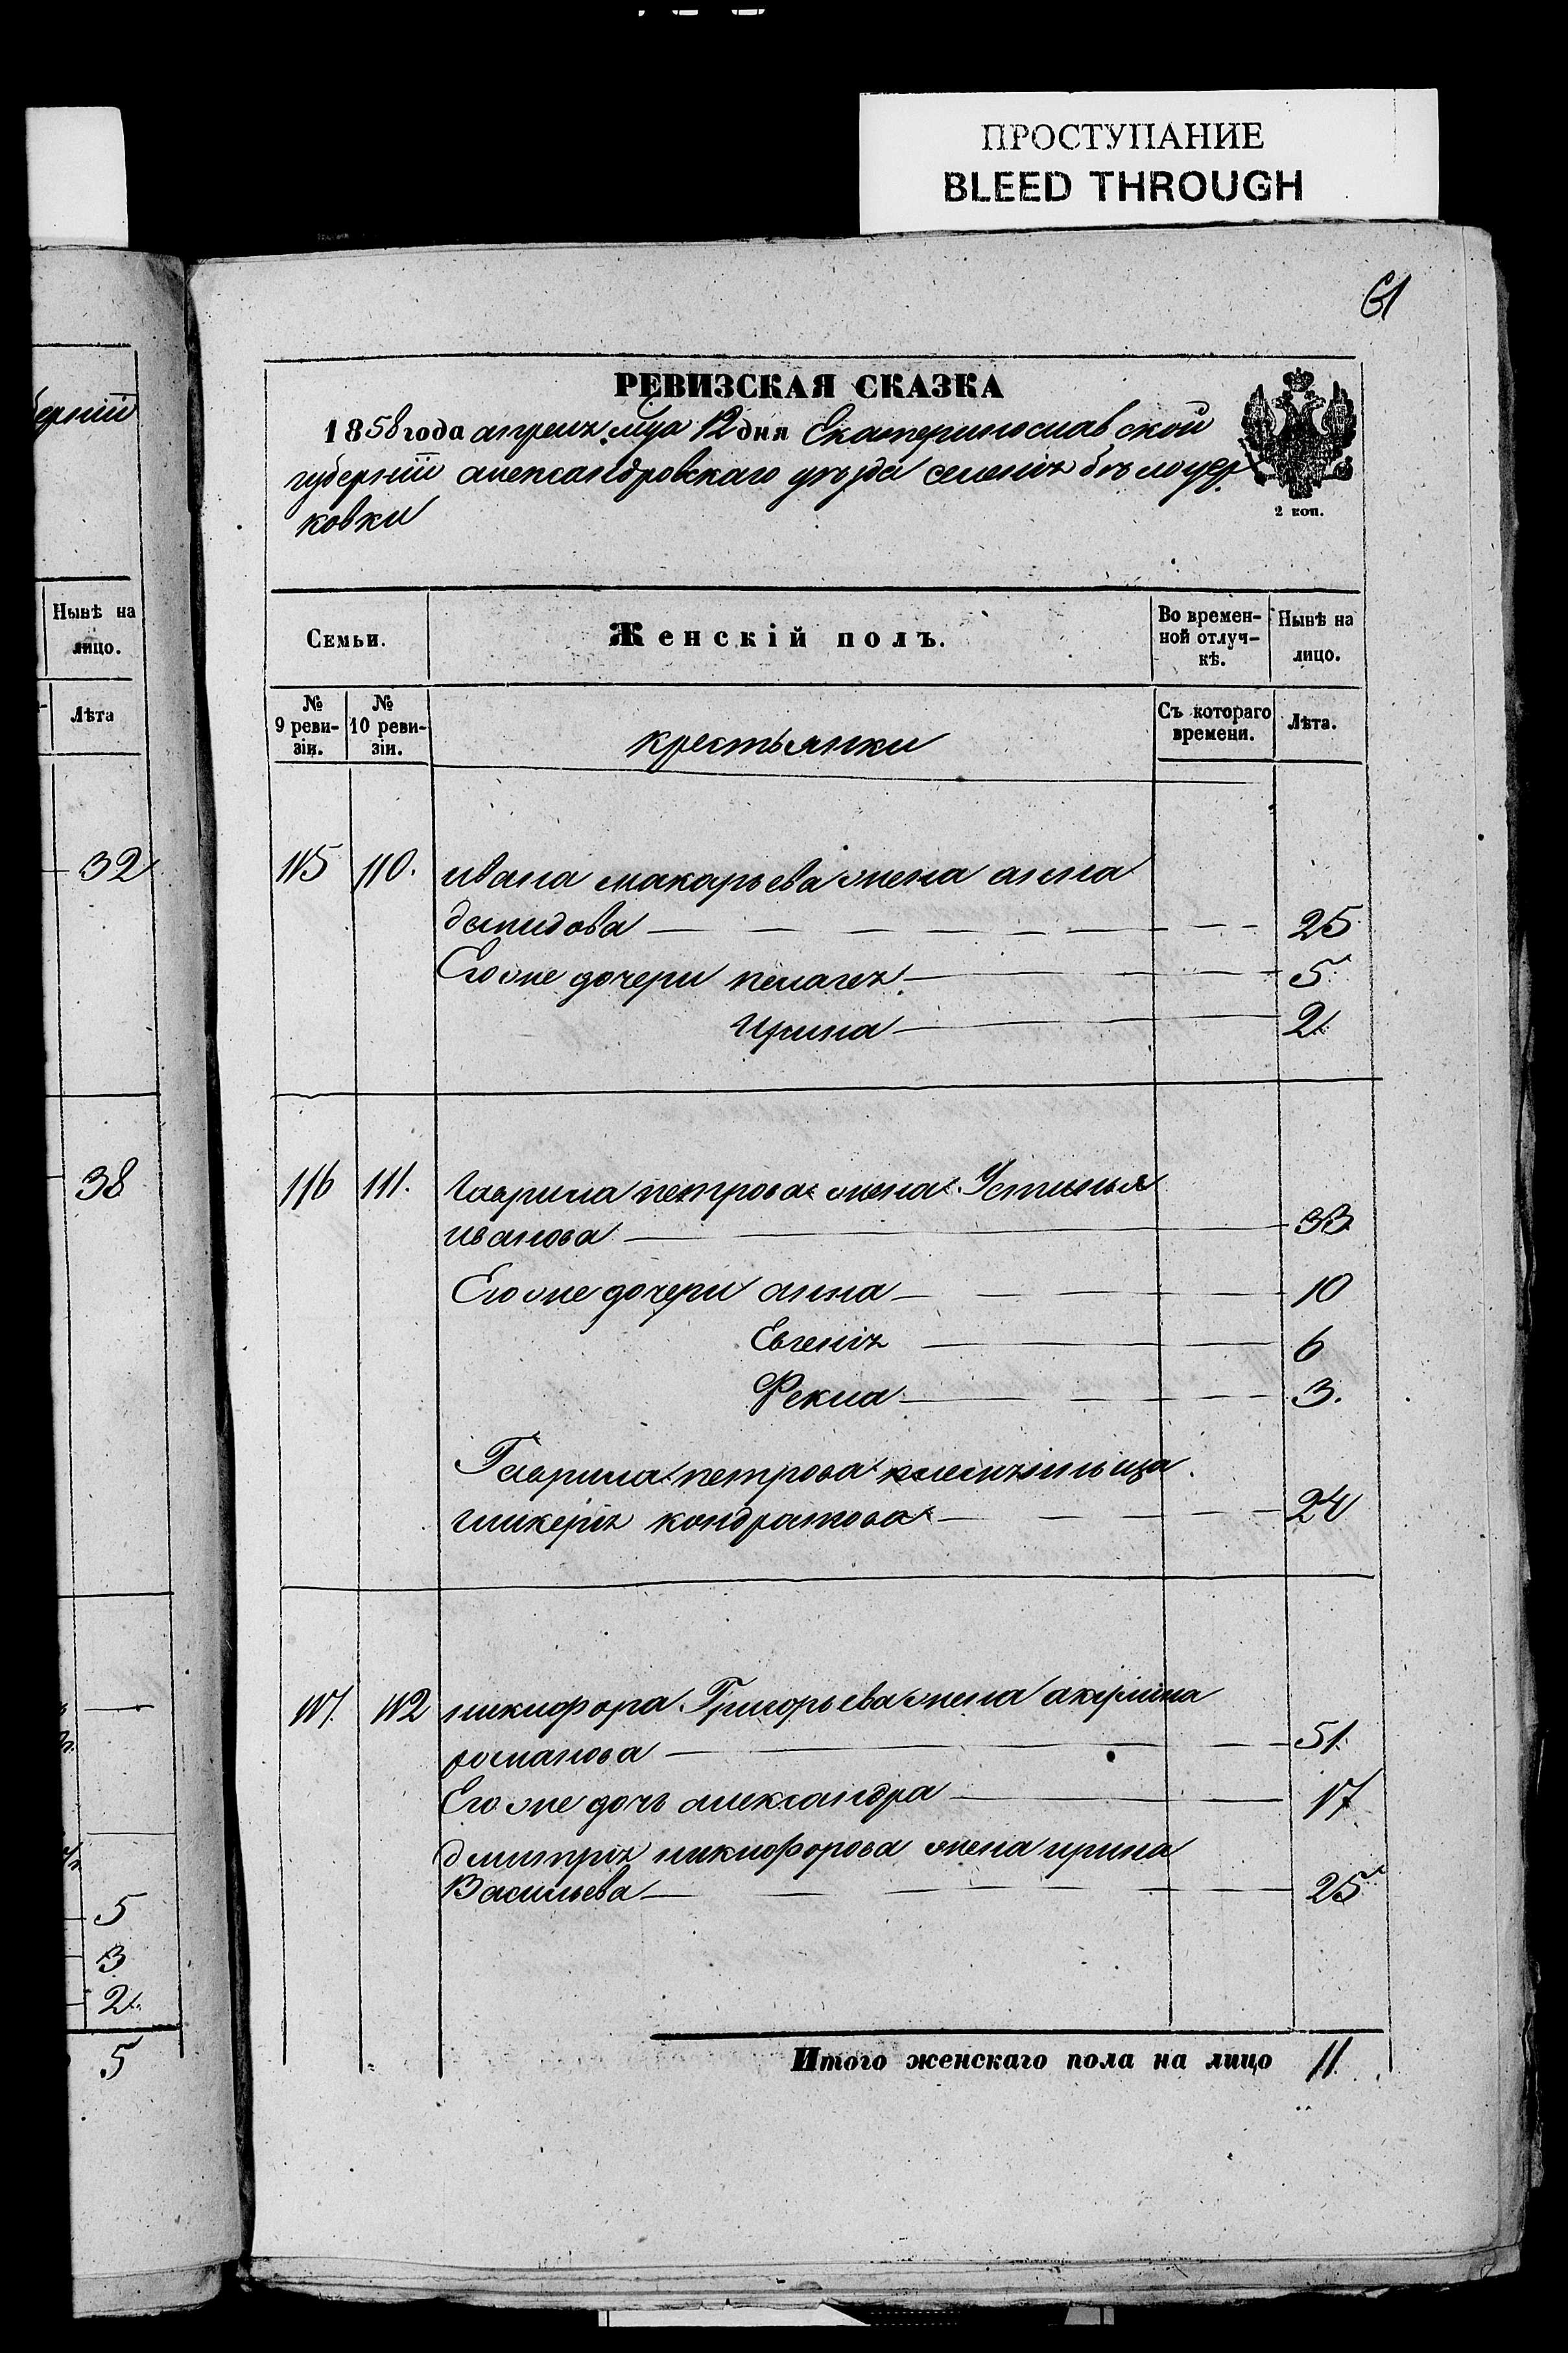 ПРОСТУПАНИЕ
BLEED THROUGH
61
РЕВИЗСКАЯ СКАЗКА
1858 года апреля мца 12 дня Екатеринославской
губерніи александровскаго уѣзда селенія бѣлоцер
ковки
2 коп.
Семьи.
Женскій полъ.
Во времен-
ной отлуч-
кѣ.
Нынѣ на
лицо.
№
9 реви-
зіи.
№
10 реви-
зіи.
крестьянки
Съ котораго
времени.
Лѣта.
115 110. ивана макарьева жена анна
демидова 25
Его же дочери пелагея 5
Ирина 2
116 111. Гаврила петрова жена Устинья
иванова 33
Его же дочери анна 10
Евгенія 6
Фекла 3.
Гаврила петрова племяннница
гликерія кондратова 24
117 112 никифора Григорьева жена акулина
романова 51
Его же дочь александра 17
дмитрія никифорова жена ирина
Васильева 25
Итого женскаго пола на лицо 11
ерніи
Нынѣ на
лицо.
Лѣта
32
38
5
3
2
5